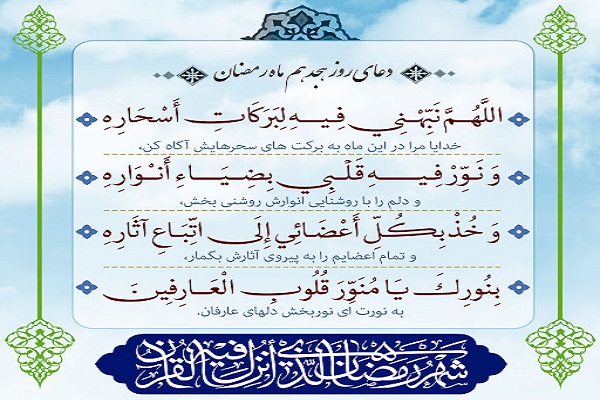 دعای روز هجدهم ماه رمضان
اللَّهُمَّ نَبِّهْنِي فِيهِ لِبَرَكَاتِ أَسْحَارِهِ
خدایا مرا در این ماه به برکت های سحرهایش آگاه کن،
وَ نَوِّرْ فِيهِ قَلْبِي بِضِيَاءِ أَنْوَارِهِ
و دلم را با روشنایی انوارش روشنی بخش،
وَ خُذْ بِكُلِّ أَعْضَائِي إِلَى اتِّبَاعِ آثَارِهِ
و تمام اعضایم را به پیروی آثارش بگمار،
بِنُورِكَ يَا مُنَوِّرَ قُلُوبِ الْعَارِفِينَ
به نورت ای نوربخش دلهای عارفان.
شهر رمضان الذي أنزل فيه القرآن